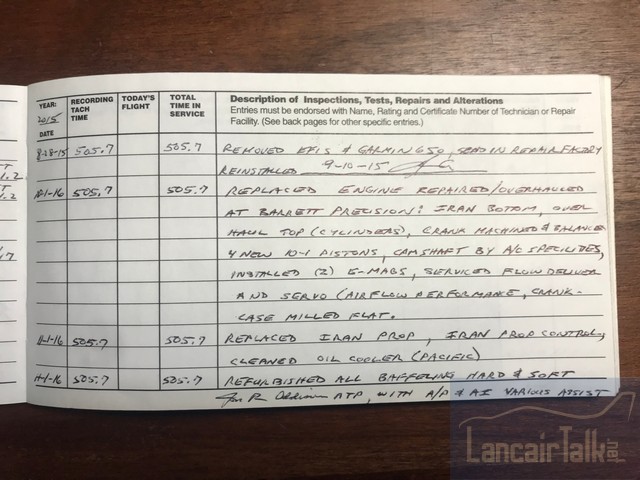 YEAR: 2015 DATE RECORDING TACH TIME TODAY'S FLIGHT TOTAL TIME IN SERVICE Description of Inspections, Tests, Repairs and Alterations
Entries must be endorsed with Name, Rating and Certificate Number of Technician or Repair
Facility. (See back pages for other specific entries.)
8-28-15 505.7 505.7 REMOVED EFIS & GARMIN 650, SEND IN REPAIR FACTORY
REINSTALLED 9-10-15
505.7 505.7 REPLACED ENGINE REPAIRED/OVERHAULED
AT BARRETT PRECISION: IRAN BOTTOM, OVER
HAUL TOP (CYLINDERS), CRANK MACHINED & BALANCE
4 NEW 10-1 PISTONS, CAMSHAFT BY A/C SPECILITIES,
INSTALLED (2) E-MAGS, SERVICED FLOW DELIVER
AND SERVO (AIRFLOW PERFORMANCE, CRANK-
CASE MILLED FLAT.
11-1-16 505.7 505.7 REPLACED IRAN PROP, IRAN PROP CONTROL,
CLEANED OIL COOLER (PACIFIC)
11-1-16 505.7 505.7 REFURBISHED ALL BAFFERING HARD & SOFT
ATP, WITH A/P & AI VARIOUS ASSIST
LancairTalk.net